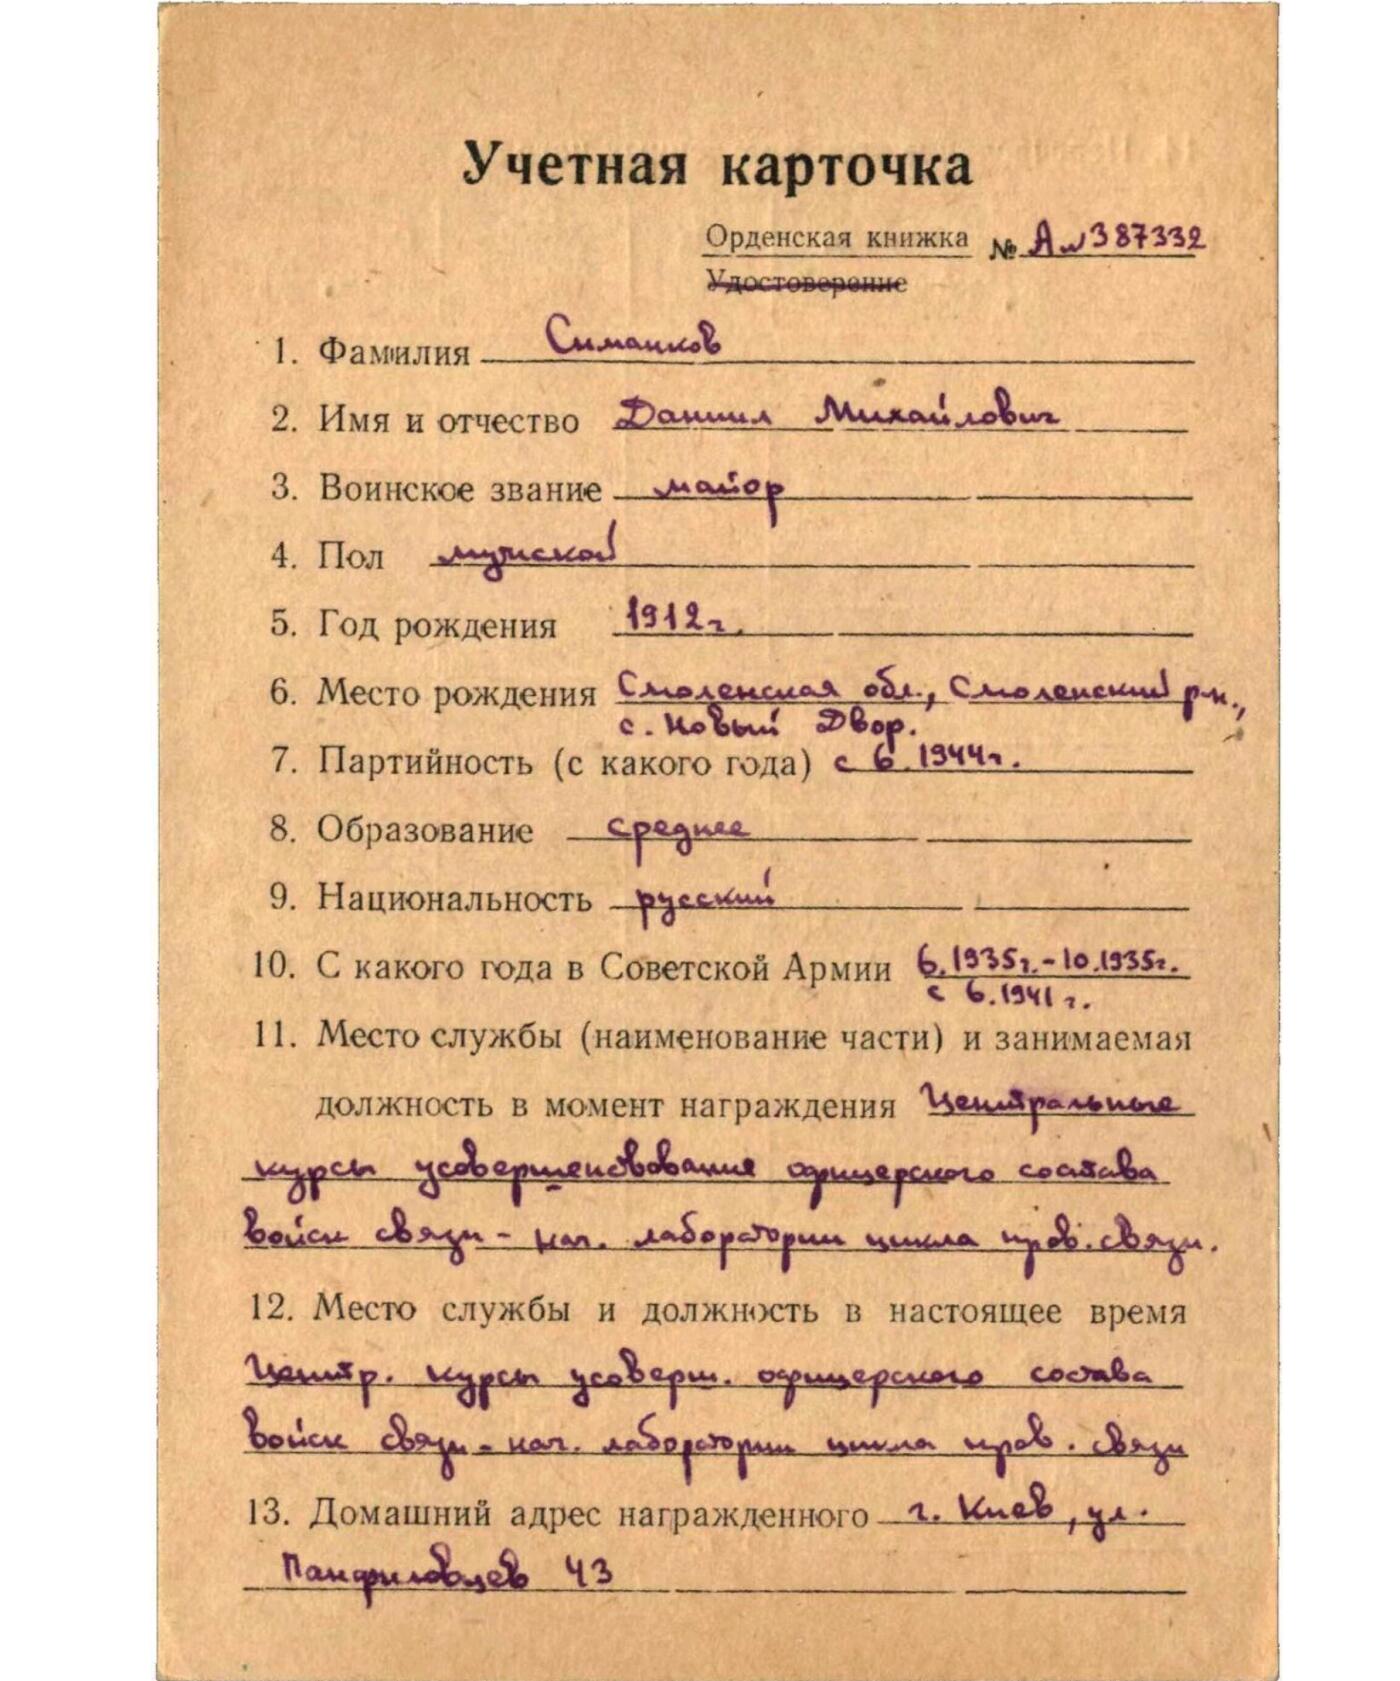 Учетная карточка
Орденская книжка № А № 387332
Удостоверение
1. Фамилия Симанков
2. Имя и отчество Даниил Михайлович
3. Воинское звание майор
4. Пол мужской
5. Год рождения 1912г.
6. Место рождения Смоленская обл., Смоленский р-н.,
с. Новый Двор.
7. Партийность (с какого года) с 6.1944г.
8. Образование среднее
9. Национальность русский
10. С какого года в Советской Армии 6.1935г.-10.1935г.
с 6.1941г.
11. Место службы (наименование части) и занимаемая
должность в момент награждения Центральные
курсы усовершенствования офицерского состава
войск связи - нач. лаборатории цикла пров. связи.
12. Место службы и должность в настоящее время
Центр. курсы усоверш. офицерского состава
войск связи - нач. лаборатории цикла пров. связи
13. Домашний адрес награжденного г. Киев, ул.
Панфиловцев 43